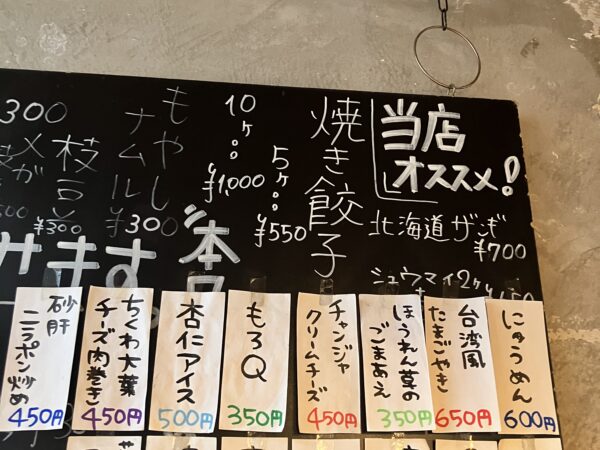 当店
オススメ!
北海道ザンギ
¥700
シュウマイ2ケ
焼き餃子
5ヶ。。
¥550
10ヶ。。
¥1,000
もやし
ナムル
¥300
枝豆
¥300
300
にゅうめん
600円
台湾風
たまごやき
650円
ほうれん草の
ごまあえ
350円
チャンジャ
クリームチーズ
450円
もろQ
350円
杏仁アイス
500円
ちくわ大葉
チーズ肉巻き
450円
砂肝
ニラポン炒め
450円